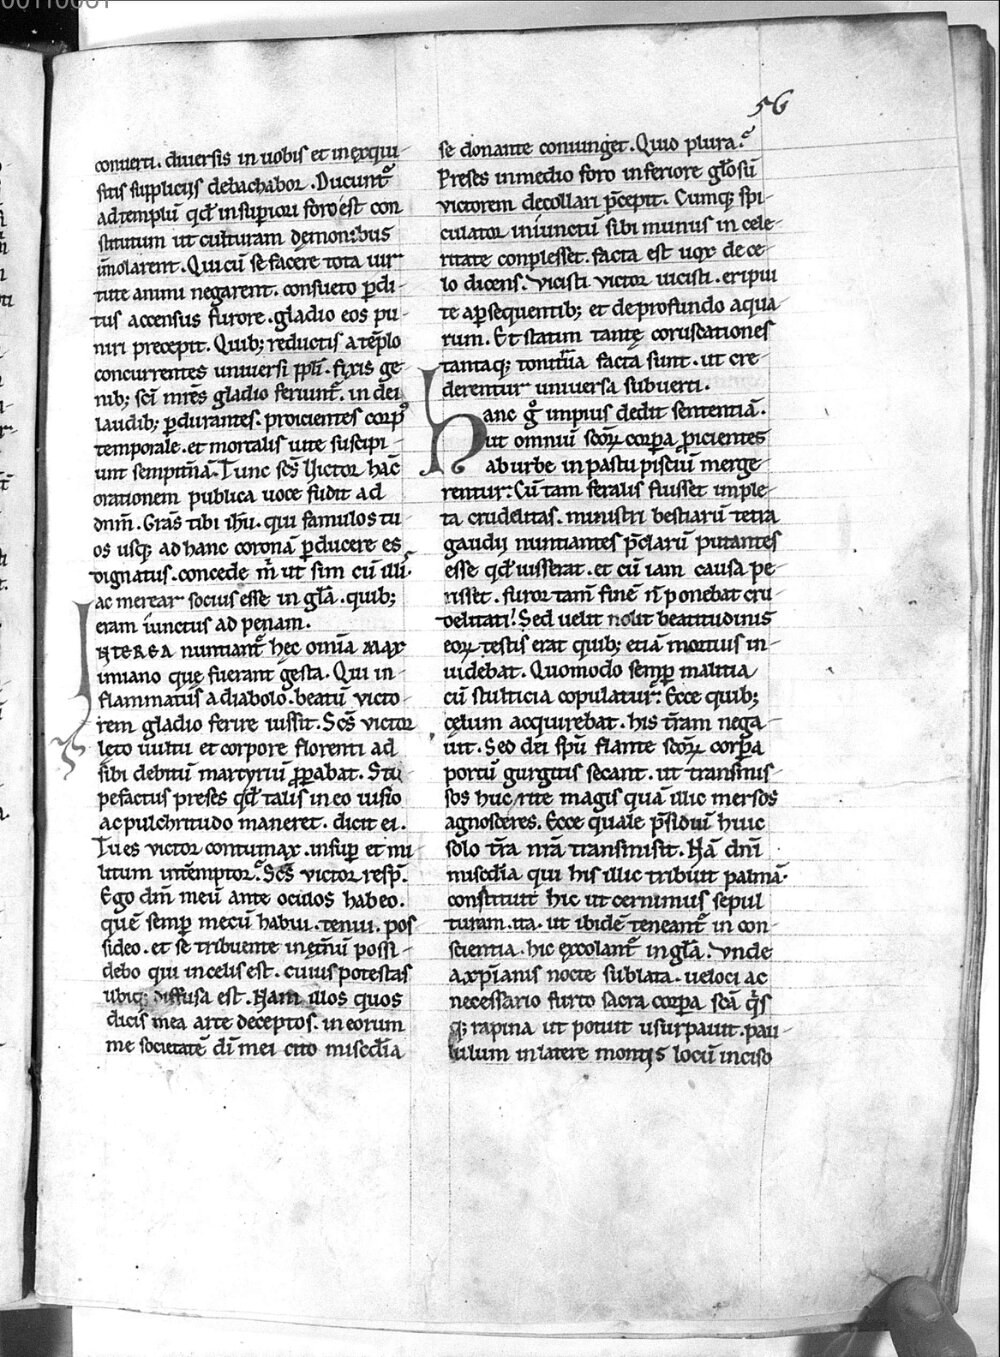 56
conuerti. diuersis in uobis et in exqui-
sitis suppliciis debachabor. Ducunt᷑
ad templū qd̄ in suꝑiori foro est con
stitutum ut culturam demonibus
īmolarent. Qui cū se facere tota uir-
tute animi negarent. consueto ꝑdi-
tus accensus furore. gladio eos pu-
niri precepit. Quib; reductis a tēplo
concurrentes uniuersi ppl̄i. fixis ge-
nib; sc̄i mr̄es gladio feriunt᷑. in dei
laudib; ꝑdurantes. proicientes corpꝰ
temporale. et mortalis uite suscipi-
unt sempitn̄ā. Tunc sc̄s Victor hāc
orationem publica uoce fudit ad
dnm̄. Gr̄as tibi ih̄u. qui famulos tu-
os usq; ad hanc coronā ꝑducere es
dignatus. concede m̄ ut sim cū illis.
ac merear socius esse in gl̄a. quib;
eram iunctus ad penam.
INTEREA nuntiant᷑ hec omīa MAX
imiano que fuerant gesta. Qui in-
flammatus a diabolo. beatū victo-
rem gladio ferire iussit. Sc̄s victor
leto uultu et corpore florenti ad
sibi debitū martyriū ꝓꝑabat. Stu-
pefactus preses qd̄ talis in eo uisio
ac pulchritudo maneret. dicit ei.
Tu es victor contumax. insuꝑ et mi-
litum ūtemptor. Sc̄s victor resp̄.
Ego dm̄ meū ante oculos habeo.
quē semꝑ mecū habui. tenui. pos-
sideo. et se tribuente in eūū possi-
debo qui in celis est. cuius potestas
ubiq; diffusa est. Nam illos quos
dicis mea arte deceptos. in eorum
me societatē dī mei cito misc̄dia
se donante coniunget. Quid plura.
Preses in medio foro inferiore gl̄osū
victorem decollari p̄cepit. Cumq; spi-
culator iniunctū sibi munus in cele-
ritate conplesset. facta est uox de ce-
lo dicens. Vicisti victor uicisti. eripui
te a ꝑsequentib; et de profundo aqua-
rum. Et statim tantę coruscationes
tantaq; tonitrua facta sunt. ut cre-
derentur uniuersa subuerti.
Hanc g̊ impius dedit sententiā.
ut omniū sc̄oꝝ corꝑa ꝓicientes
ab urbe in pastū pisciū merge-
rentur. Cū tam feralis fuisset imple-
ta crudelitas. ministri bestiarū tetra
gaudii nuntiantes p̄clarū putantes
esse qd̄ iusserat. et cū iam causa pe-
risset. furor tam̄ finē n̄ ponebat cru-
delitati! Sed uelit nolit beatitudinis
eoꝝ testis erat quib; etiā mortuis in-
uidebat. Quomodo semꝑ malitia
cū stulticia copulatur. Ecce quib;
celum acquirebat. his t̄ram nega-
uit. Sed dei sp̄u flante sc̄oꝝ corꝑa
portū gurgitis secant. ut transmis-
sos huc rite magis quā illic mersos
agnosceres. Ecce quale p̄sidiū huic
solo t̄ra nr̄a transmisit. Nā dn̄i
misc̄dia qui his illic tribuit palmā.
constituit hic ut cernimus sepul
turam. ita. ut ibidē teneant᷑ in con-
scientia. hic excolant᷑ in gl̄a. Vnde
a xp̄ianis nocte sublata. ueloci ac
necessario furto sacra corꝑa sc̄a q̄s
q; rapina ut potuit usurpauit. pau-
lulum in latere montis locū inciso